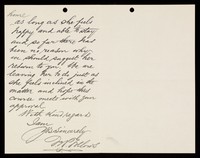 home
as long as she feels
happy and able to stay
and so far there has
been no reason why
we should suggest her
return to you. We are
leaving her to do just as
she feels inclined in the
matter and hope this
course meets with your
approval.
With kind regards
I am
Yrs sincerely